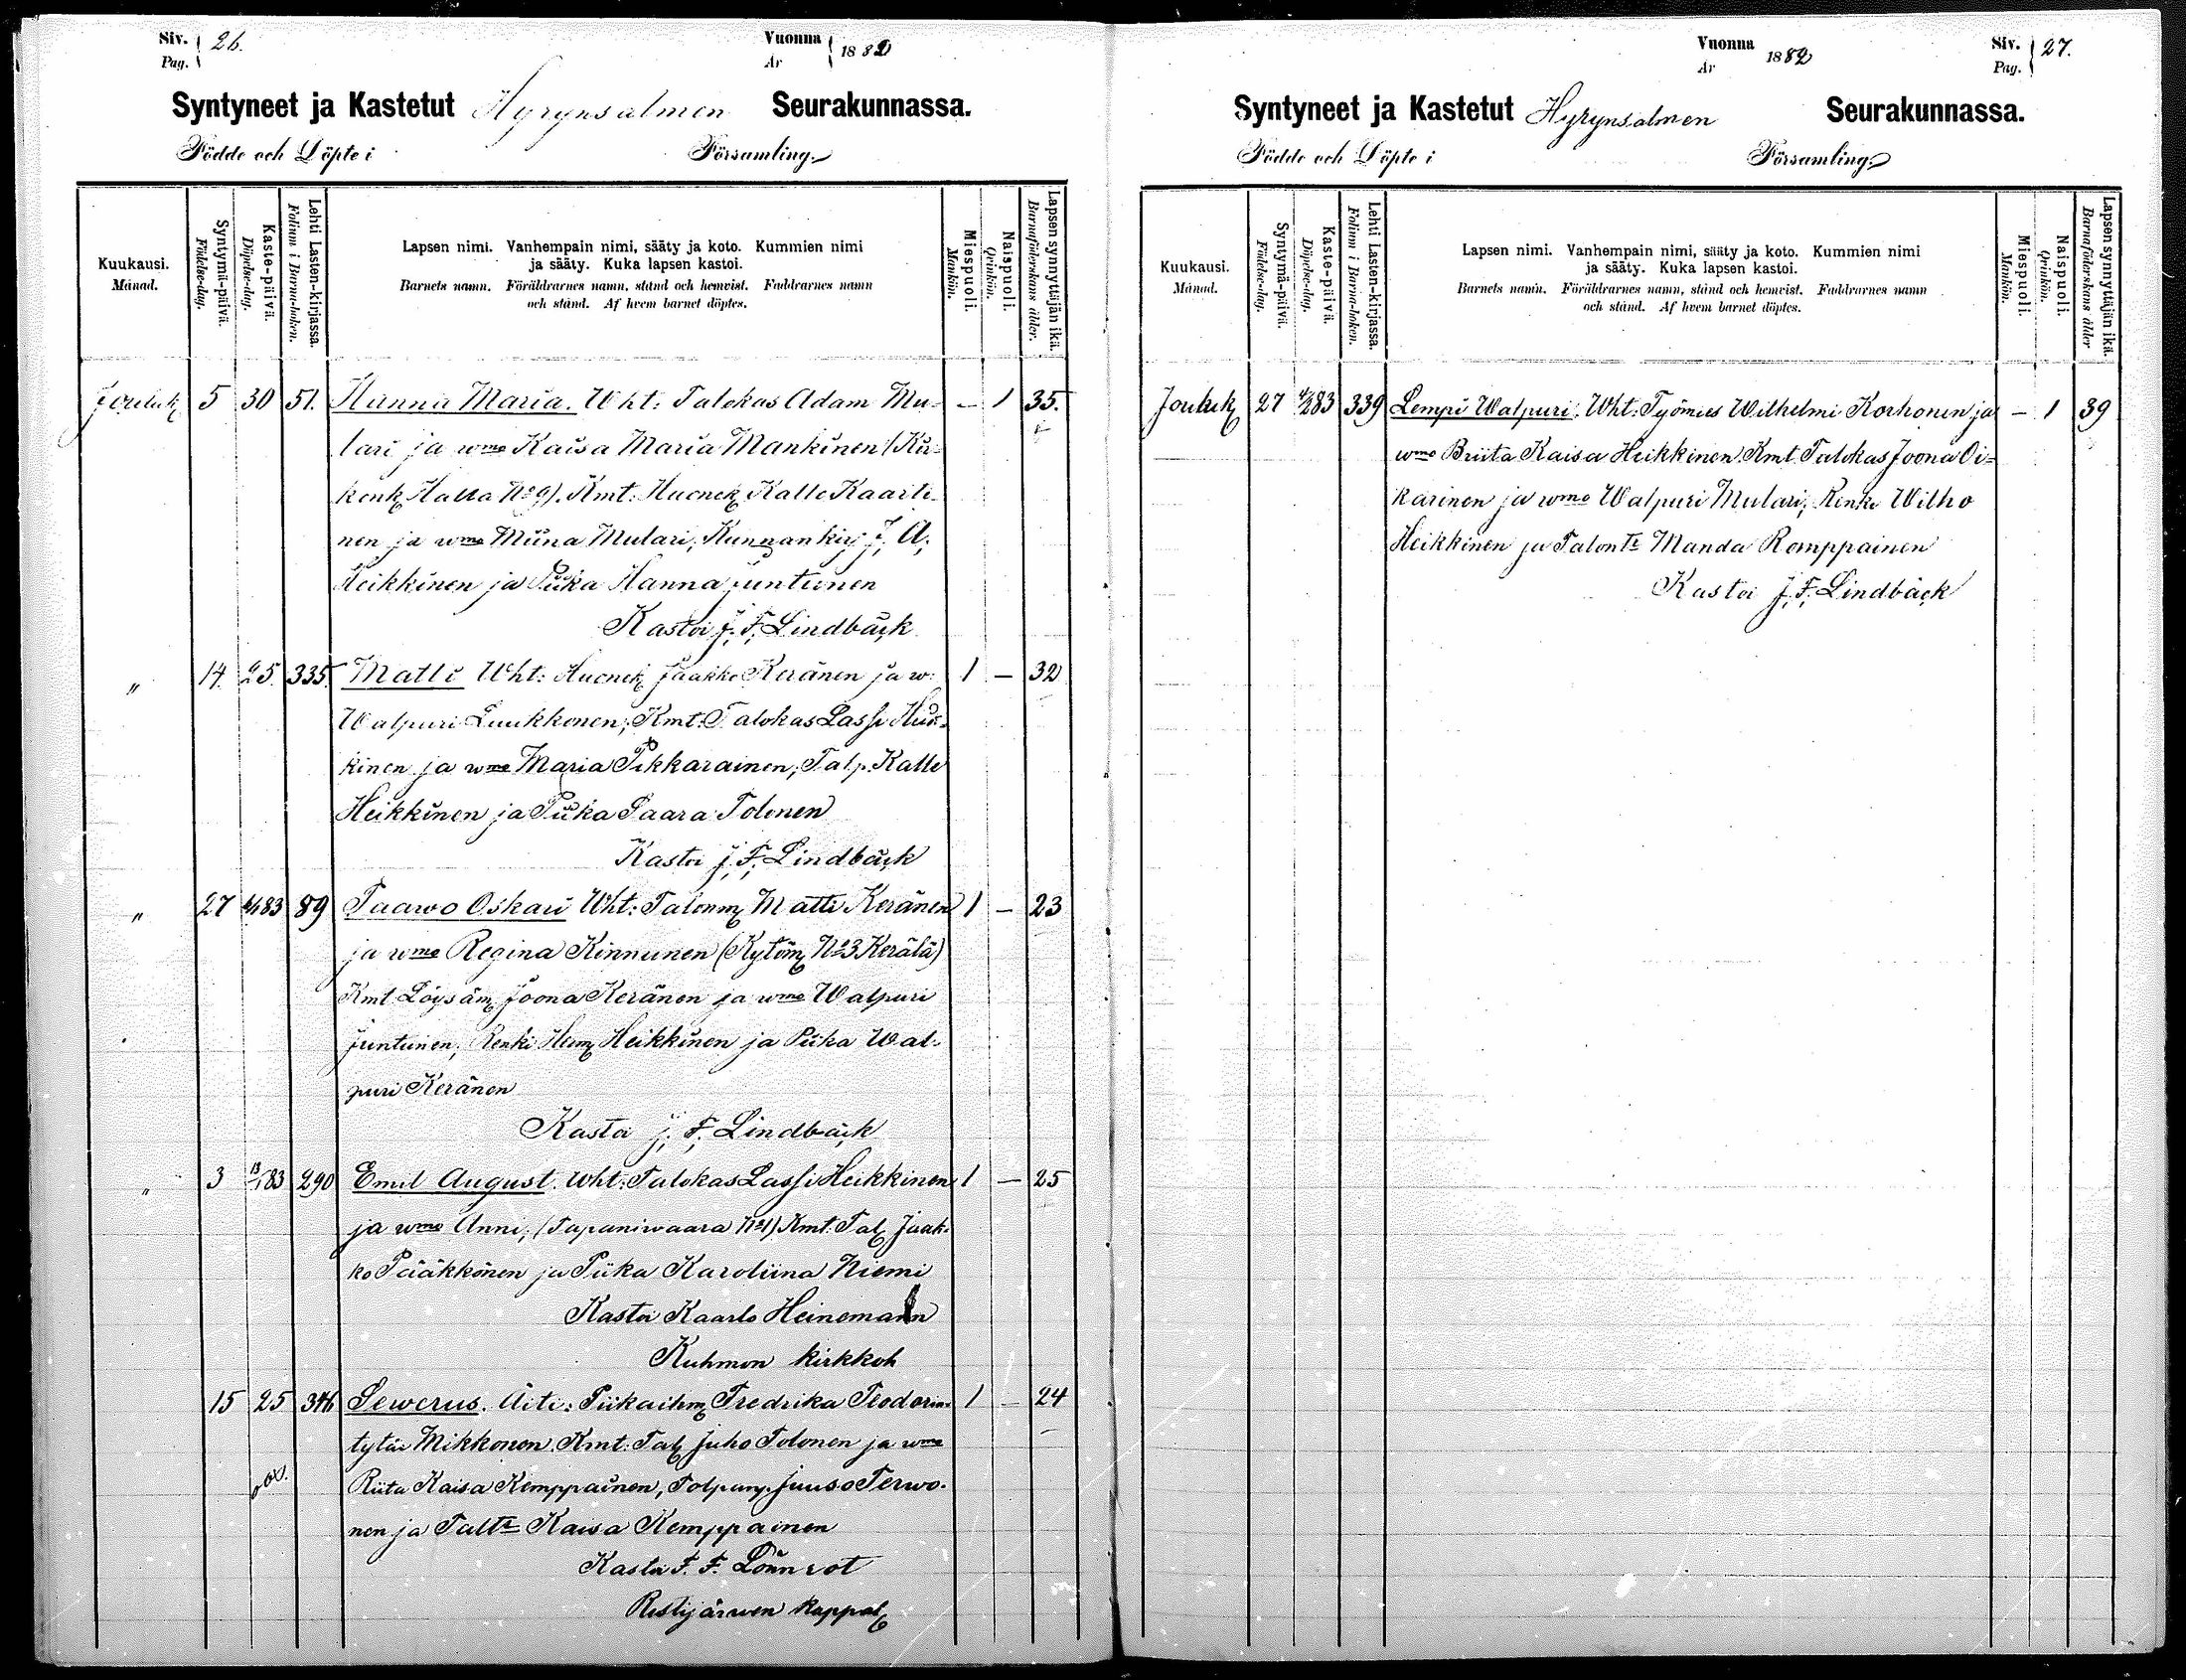 Siv. 26.
Pag.
Vuonna 1882
År
Syntyneet ja Kastetut Hyrynsalmen Seurakunnassa.
Födde och Döpte i Församling.
Kuukausi.
Månad.
Syntymä-päivä.
Födelse-dag.
Kaste-päivä.
Döpelse-dag.
Lehti Lasten-kirjassa.
Folium i Barna-boken.
Lapsen nimi. Vanhempain nimi, sääty ja koto. Kummien nimi
ja sääty. Kuka lapsen kastoi.
Barnets namn. Föräldrarnes namn, stånd och hemvist. Faddrarnes namn
och stånd. Af hvem barnet döptes.
Miespuoli.
Mankön.
Naispuoli.
Qvinkön.
Lapsen synnyttäjän ikä.
Barnaföderskans ålder.
Jouluk 5 30 51. Hanna Maria. Wht: Talokas Adam Mu- – 1 35.
lari ja wmo Kaisa Maria Mankinen (Kir-
konk Halla No 9). Kmt: Huonek Kalle Kaarti-
nen ja wmo Miina Mulari, Kunnankirj J. A.
Heikkinen ja Piika Hanna Juntunen
Kastoi J. F. Lindbäck
" 14. 25. 335. Matti Wht: Huonek Jaakko Keränen ja w: 1 – 32
Walpuri Luukkonen; Kmt: Talokas Lassi Heik-
kinen ja wmo Maria Pikkarainen, Talp. Kalle
Heikkinen ja Piika Saara Tolonen
Kastoi J. F. Lindbäck
" 27 6/1 83 89 Paawo Oskari Wht: Talonm Matti Keränen 1 – 23
ja wmo Regina Kinnunen (Kytöm No 3 Kerälä)
Kmt Löysäm Joona Keränen ja wmo Walpuri
Juntunen, Renki Herm Heikkinen ja Piika Wal-
puri Keränen
Kastoi J. F. Lindbäck
" 3 13/1 83 290 Emil August. Wht: Talokas Lassi Heikkinen 1 – 25
ja wmo Anni, (Tapaniwaara No 1) Kmt: Tal Jaak-
ko Pääkkönen ja Piika Karoliina Niemi
Kastoi Kaarlo Heinemann
Kuhmon kirkkoh
15 25 346 Sewerus. Äiti: Piikaihm Fredrika Teodorin- 1 – 24
tytär Mikkonen. Kmt: Tal Juho Tolonen ja wmo
Riita Kaisa Kemppainen, Tolpanp. Juuso Terwo-
nen ja Taltr Kaisa Kemppainen
Kastoi F. F. Lönnrot
Ristijärwen kappal
Vuonna 1882
År
Siv. 27.
Pag.
Syntyneet ja Kastetut Hyrynsalmen Seurakunnassa.
Födde och Döpte i Församling.
Kuukausi.
Månad.
Syntymä-päivä.
Födelse-dag.
Kaste-päivä.
Döpelse-dag.
Lehti Lasten-kirjassa.
Folium i Barna-boken.
Lapsen nimi. Vanhempain nimi, sääty ja koto. Kummien nimi
ja sääty. Kuka lapsen kastoi.
Barnets namn. Föräldrarnes namn, stånd och hemvist. Faddrarnes namn
och stånd. Af hvem barnet döptes.
Miespuoli.
Mankön.
Naispuoli.
Qvinkön.
Lapsen synnyttäjän ikä.
Barnaföderskans ålder
Jouluk 27 83 339 Lempi Walpuri. Wht: Työmies Wilhelmi Korhonen ja – 1 39
wmo Briita Kaisa Heikkinen. Kmt. Talokas Joona Oi-
karinen ja wmo Walpuri Mulari, Renki Wilho
Heikkinen ja Talontr Manda Romppainen
Kastoi J. F. Lindbäck